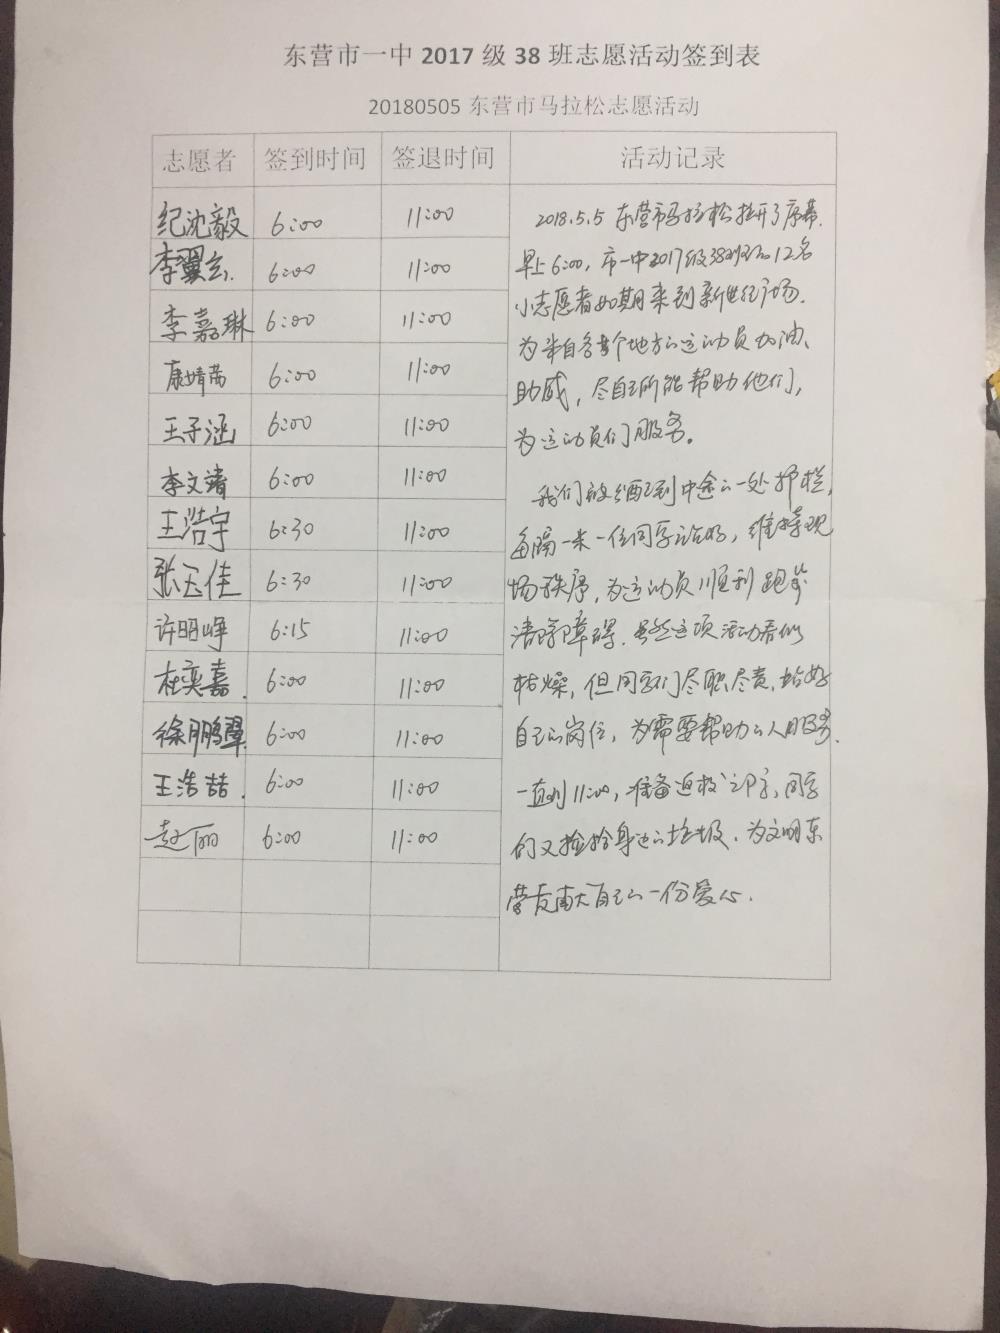 东营市一中 2017 级 38 班志愿活动签到表
20180505 东营市马拉松志愿活动
志愿者 签到时间 签退时间 活动记录
纪沈毅 6:00 11:00
李翼云 6:00 11:00
李嘉琳 6:00 11:00
康婧茜 6:00 11:00
王子涵 6:00 11:00
李文靖 6:00 11:00
王浩宇 6:30 11:00
张玉佳 6:30 11:00
许明峥 6:15 11:00
杜奕嘉. 6:00 11:00
徐鹏翚 6:00 11:00
王浩喆. 6:00 11:00
赵丽 6:00 11:00
2018.5.5 东营市马拉松拉开了序幕.
早上6:00, 市一中2017级38班的12名
小志愿者如期来到新世纪广场.
为来自各个地方的运动员加油、
助威, 尽自己所能帮助他们,
为运动员们服务。
我们被分配到中途的一处护栏,
每隔一米一位同学站好, 维持现
场秩序, 为运动员顺利跑步
清除障碍. 虽然这项活动看似
枯燥, 但同学们尽职尽责, 站好
自己的岗位, 为需要帮助的人服务.
一直到11:00, 准备返校之时, 同学
们又捡拾身边的垃圾. 为文明东
营贡献自己的一份爱心.